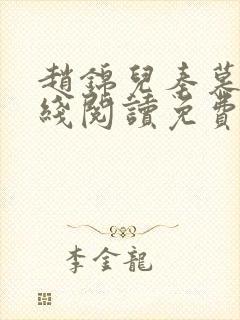 趙錦兒秦慕
綫閱讀免費
李金龍